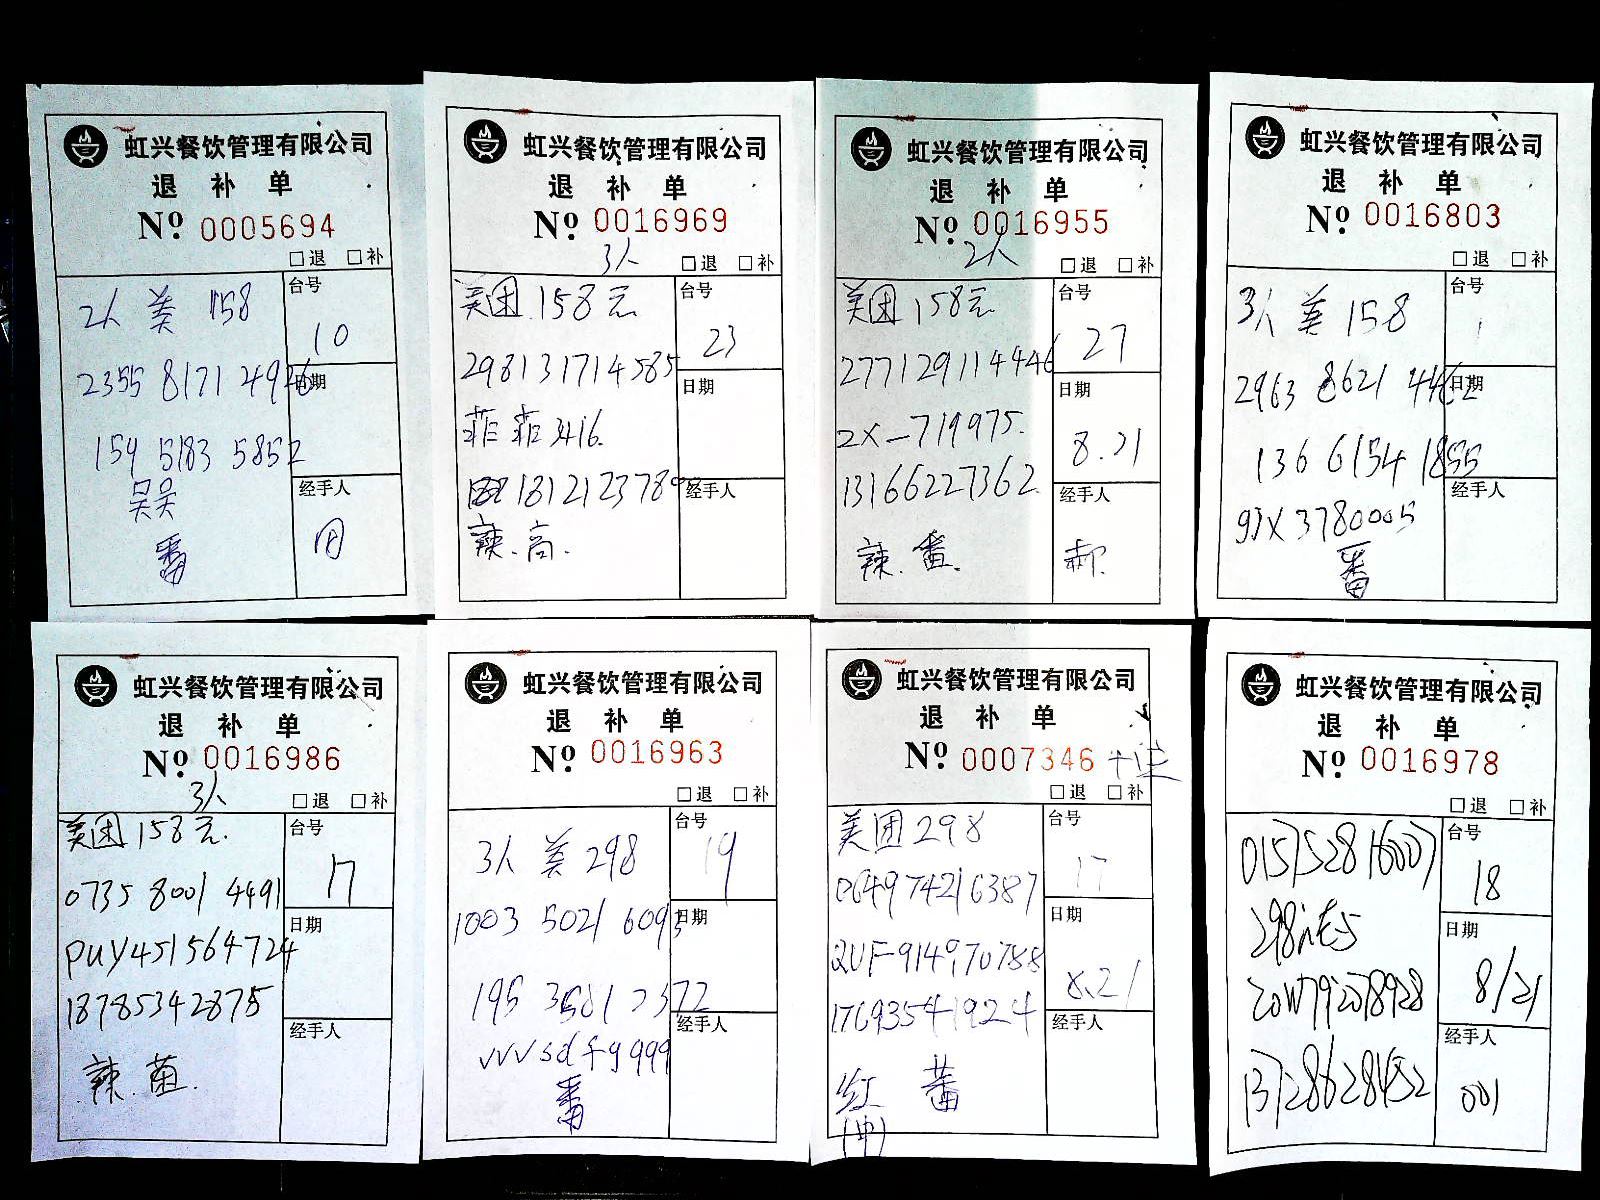 虹兴餐饮管理有限公司
退 补 单
Nº 0005694
□退 □补
2人 美 158
台号
10
2355 8171 4926
日期
159 5183 5852
吴吴
经手人
番
田
虹兴餐饮管理有限公司
退 补 单
Nº 0016969
3人
□退 □补
美团 158元
台号
23
298131714585
日期
菲菲3416.
1812123789
经手人
辣.高.
虹兴餐饮管理有限公司
退 补 单
Nº 0016955
2人
□退 □补
美团158元
台号
27
277129114446
日期
8.21
zx_719975.
13166227362
经手人
辣.番.
郝.
虹兴餐饮管理有限公司
退 补 单
Nº 0016803
□退 □补
3人 美 158
台号
1
2963 8621 4462
日期
136 6154 1855
经手人
9JX3780005
番
虹兴餐饮管理有限公司
退 补 单
Nº 0016986
3人
□退 □补
美团158元.
台号
17
0735 8001 4491
日期
puy451564724
18785342875
经手人
辣.菌.
虹兴餐饮管理有限公司
退 补 单
Nº 0016963
□退 □补
3人 美 298
台号
19
1003 5021 6093
日期
195 3501 2372
经手人
vvvsdfg999
番
虹兴餐饮管理有限公司
退 补 单
Nº 0007346
□退 □补
美团298
台号
17
064974216387
日期
8.21
QUF-914970788
17693541924
经手人
红 番
(中)
虹兴餐饮管理有限公司
退 补 单
Nº 0016978
□退 □补
015752816007
台号
18
日期
8/21
zow792078928
经手人
13728628452
001